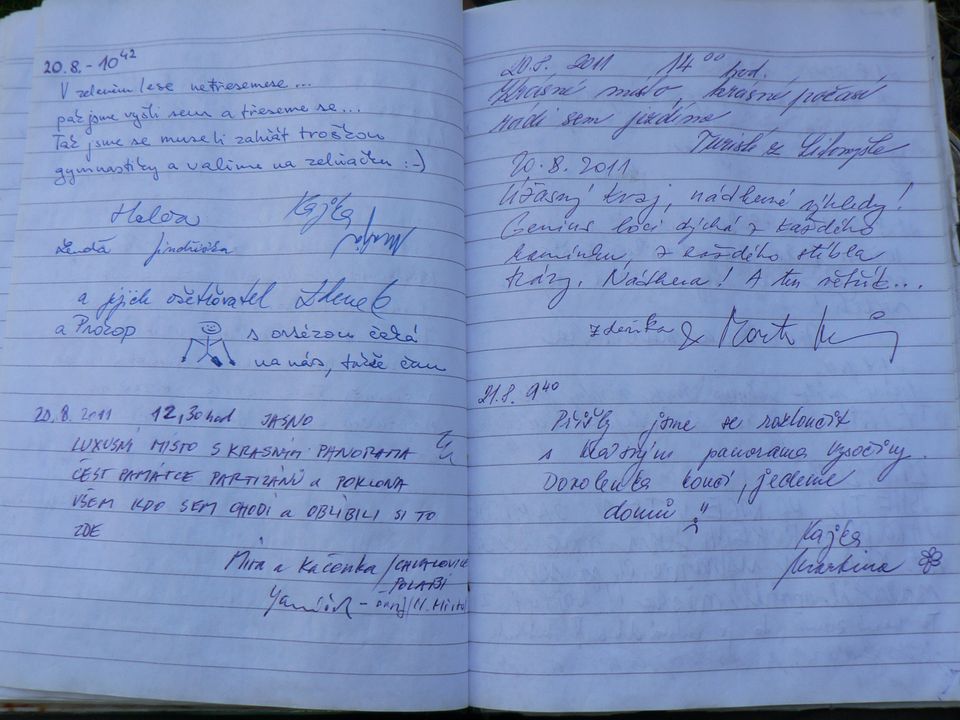 20.8. - 10 42
V zeleném lese netřesemese...
pač jsme vyšli sem a třeseme se...
Tač jsme se museli zahřát troškou
gymnastiky a valíme na zelňačku :-)
Kajka
Lenda Jindřiška
a jejich ošetřovatel Zdeněk
a Prokop
s orsézom čeká
na nás, takže čau
20.8. 2011 12,30 hod JASNO
LUXUSNÍ MÍSTO S KRÁSNÝM PANORAMA
ČEST PAMÁTCE PARTIZÁNŮ a POKLONA
VŠEM KDO SEM CHODÍ a OBLÍBILI SI TO
ZDE
Míra a Kačenka / CHVALOVICE
POLABÍ
20.8. 2011 14 00 hod.
Krásné místo, krásné počasí
rádi sem jezdíme
Turisté z Litomyšle
20.8.2011
Úžasný kraj, nádherné výhledy!
Genius loci dýchá z každého
kamínku, z každého stébla
trávy. Nádhera! A ten větřík...
Zdeňka & Martin
21.8. 9 40
Přišly jsme se rozloučit
s krásným panorama Vysočiny.
Dovolenka končí, jedeme
domů
Kajka
Martina